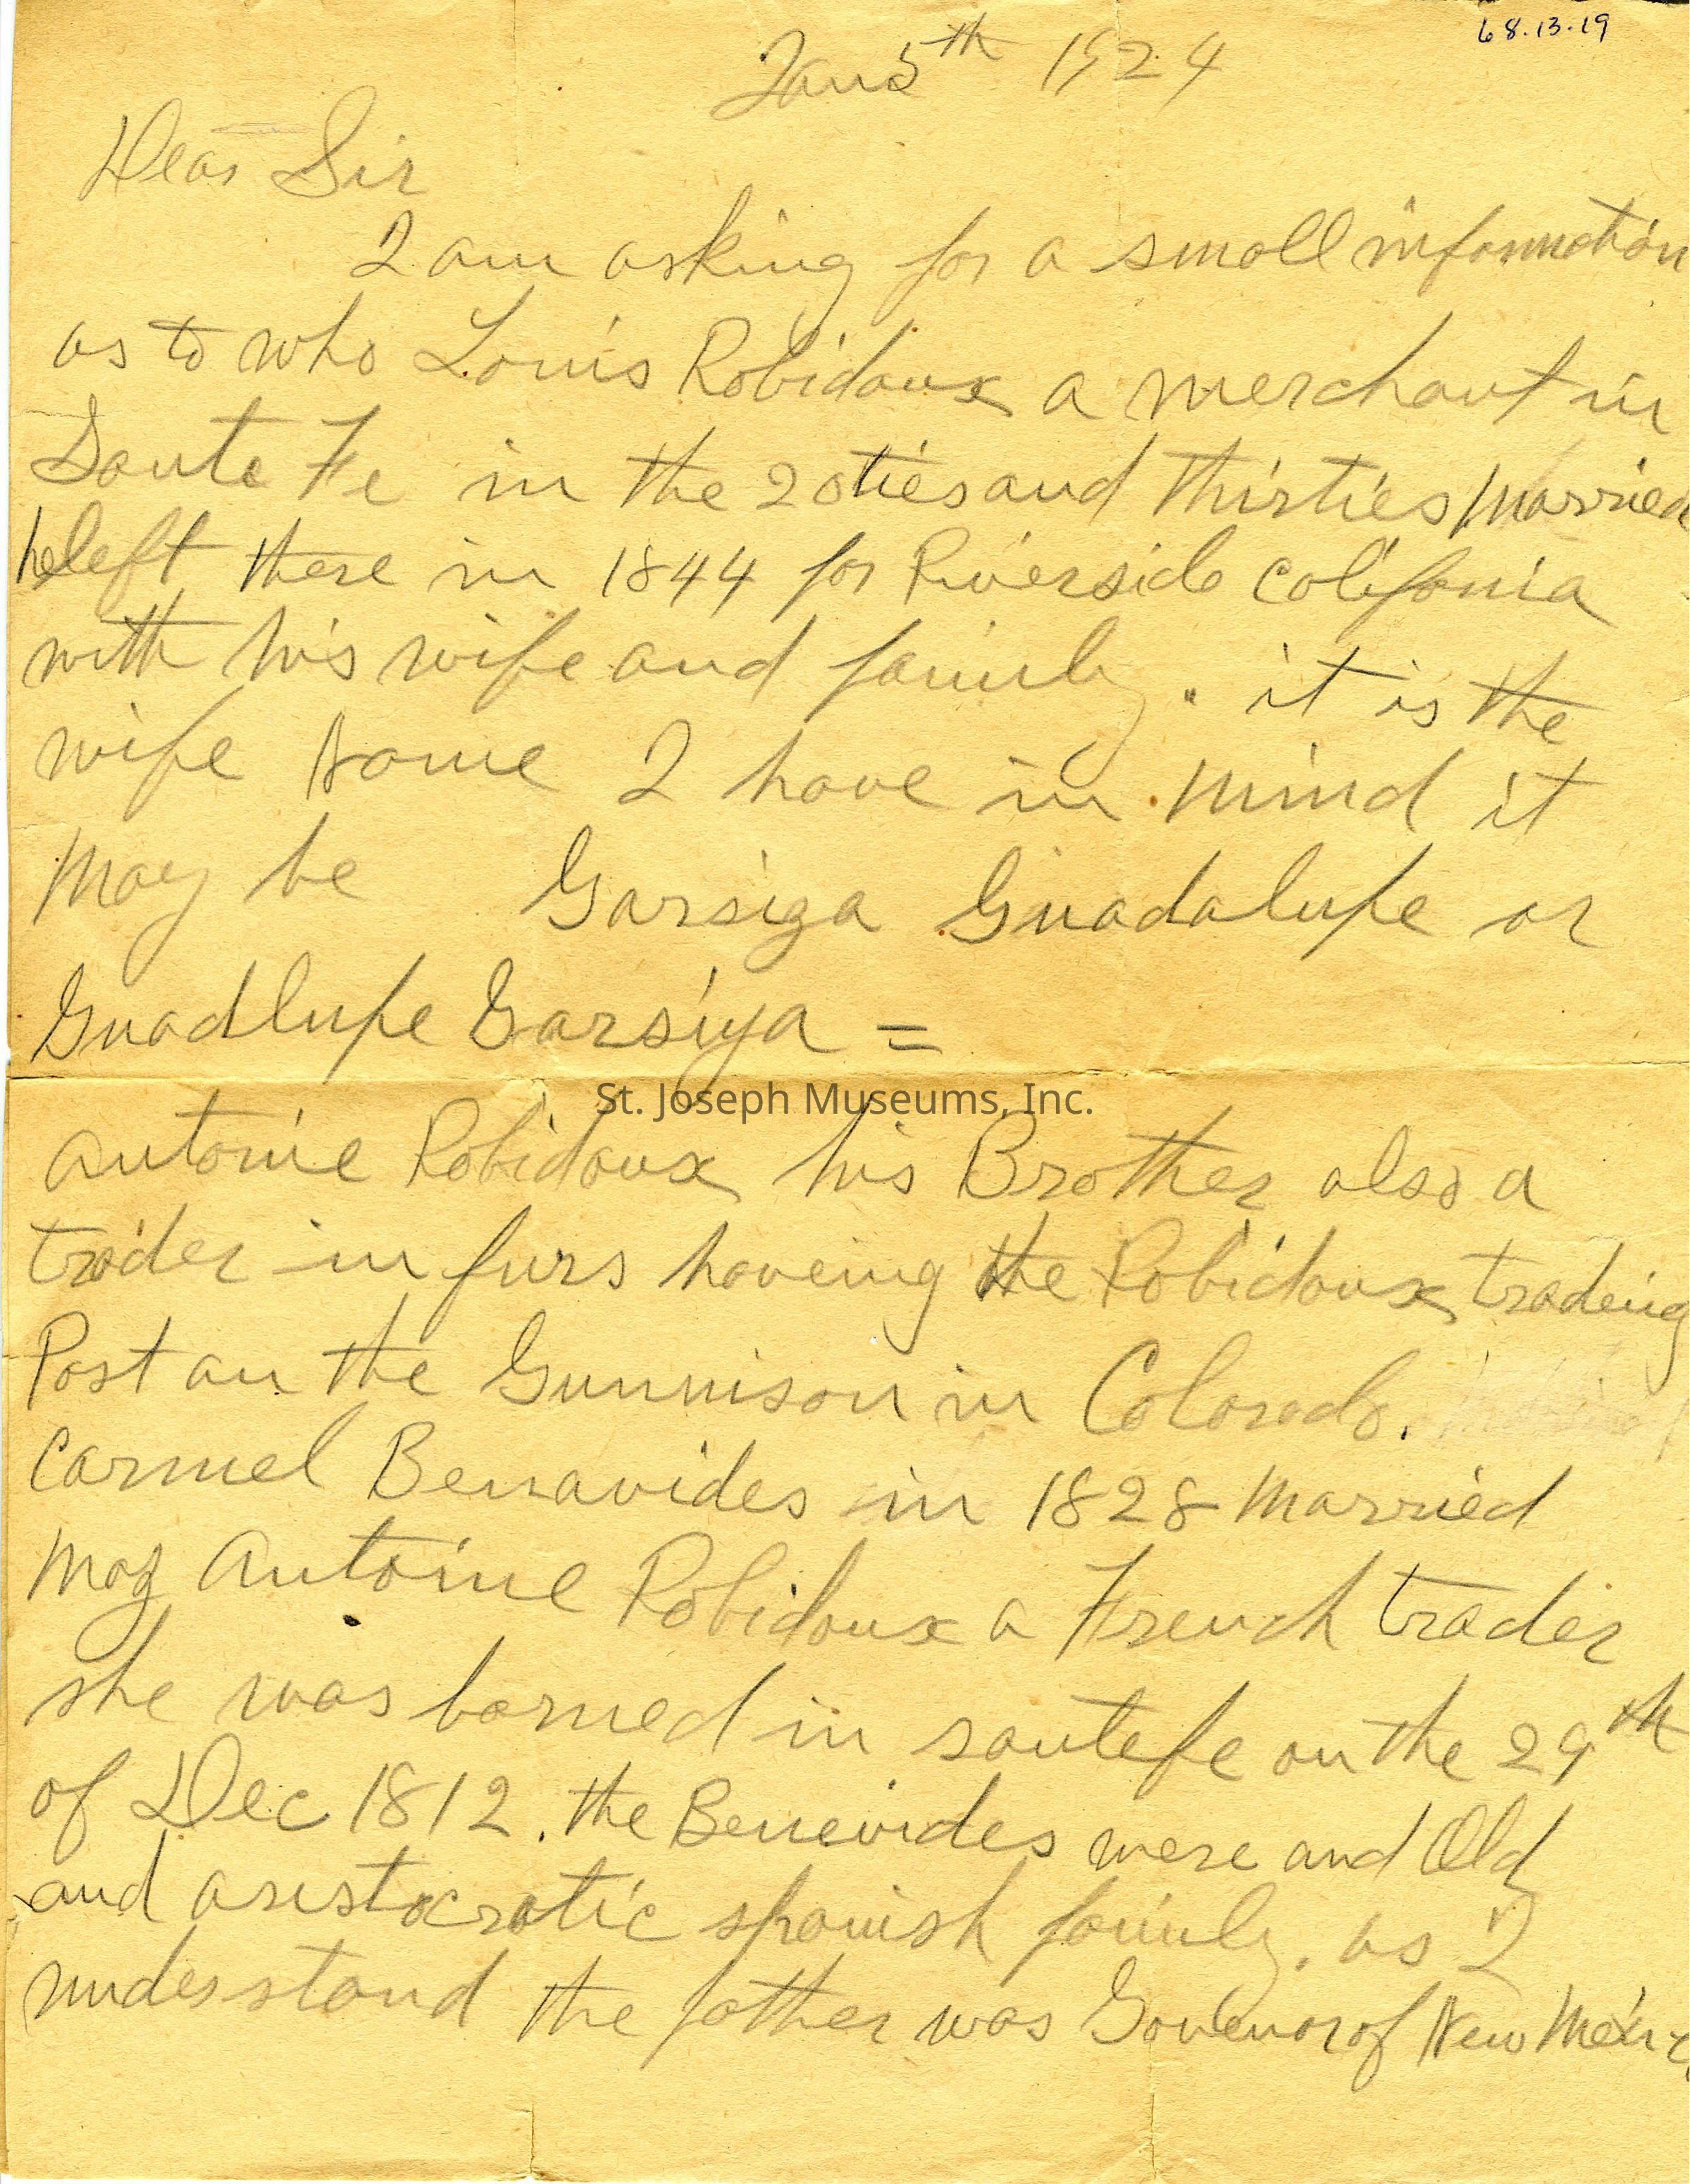 68.13.19
Jan 5th 1924
Dear Sir
I am asking for a small information
as to who Louis Robidoux a merchant in
Sante Fe in the 20ties and thirties Married
he left there in 1844 for Riverside Colifonia
with his wife and family. it is the
wife Name I have in Mind it
May be Garsiga Guadalupe or
Guadlupe Garsiya =
St. Joseph Museums, Inc.
Antonie Robidoux his Brother also a
trader in furs haveing the Robidoux tradeing
Post on the Gunnison in Colorado.
Carmel Benavides in 1828 Married
Maj Antoine Robidoux a French trader
she was borned in santefe on the 29th
of Dec 1812. the Benevides were and Old
and aristocratic spanish family. as I
understand the father was Govenor of New Mexic